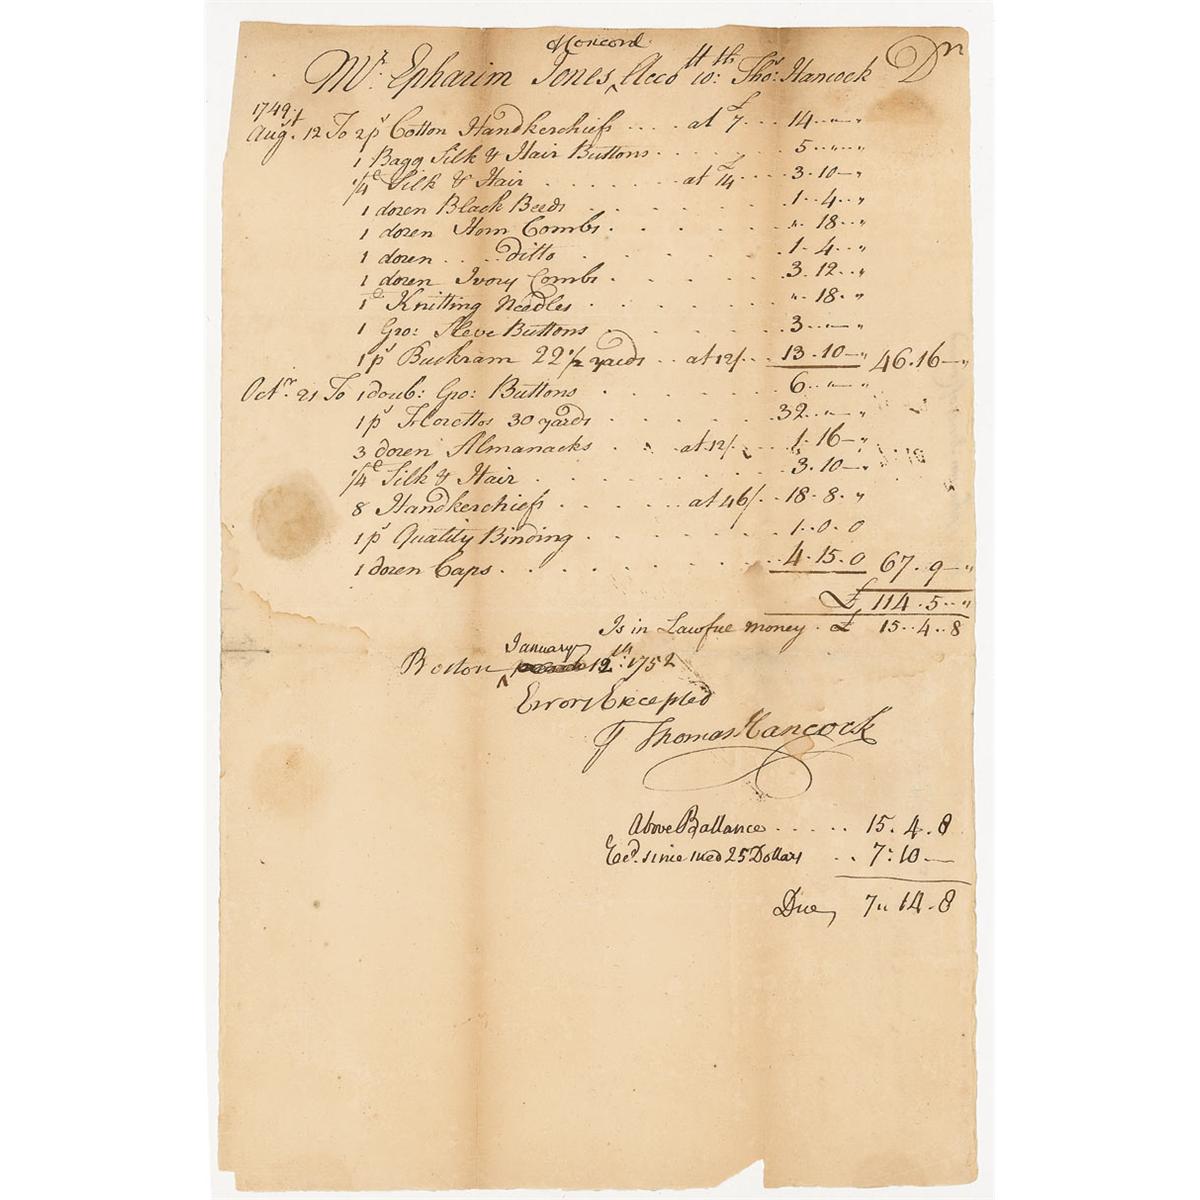 Concord
Mr. Epharim Jones, Acco.tt wth: Thos. Hancock Dr
1749
Augt. 12 To 2 ps Cotton Handkerchiefs .... at £7 ... 14 .. - "
1 Bagg Silk & Hair Buttons . . . . . . 5 .. - .. "
1/4 C Silk & Hair . . . . . at £14 ... 3 . 10 - "
1 dozen Black Beeds . . . . . . 1 .. 4 .. "
1 dozen Horn Combs . . . . . . " . 18 .. "
1 dozen .... ditto . . . . . . 1 . 4 .. "
1 dozen Ivory Combs . . . . . . 3 . 12 .. "
1 C Knitting Needles . . . . . . " . 18 . "
1 Gro: Sleve Buttons . . . . . . 3 .. - "
1 ps Buckram 22 1/2 yards .. at 12/- ... 13 . 10 - " 46 . 16 - "
Octr. 21 To 1 doub: Gro: Buttons . . . . . 6 .. - "
1 ps Florettos 30 yards . . . . . . 32 .. - "
3 dozen Almanacks . . . at 12/- ... 1 . 16 - "
1/4 C Silk & Hair . . . . . . 3 . 10 - "
8 Handkerchiefs . . . . . at 46/- .. 18 . 8 . "
1 ps Quality Binding . . . . . . 1 . 0 . 0
1 dozen Caps . . . . . . . . . 4 . 15 . 0 67 . 9 - "
£ 114 . 5 .. "
Is in Lawfue money . £ 15 .. 4 . 8
January
Boston 12th: 1752
Errors Excepted
Thomas Hancock
Above Ballance . . . . . 15 . 4 . 8
25 Dollars .. 7 : 10 -
Due, 7 " 14 . 8